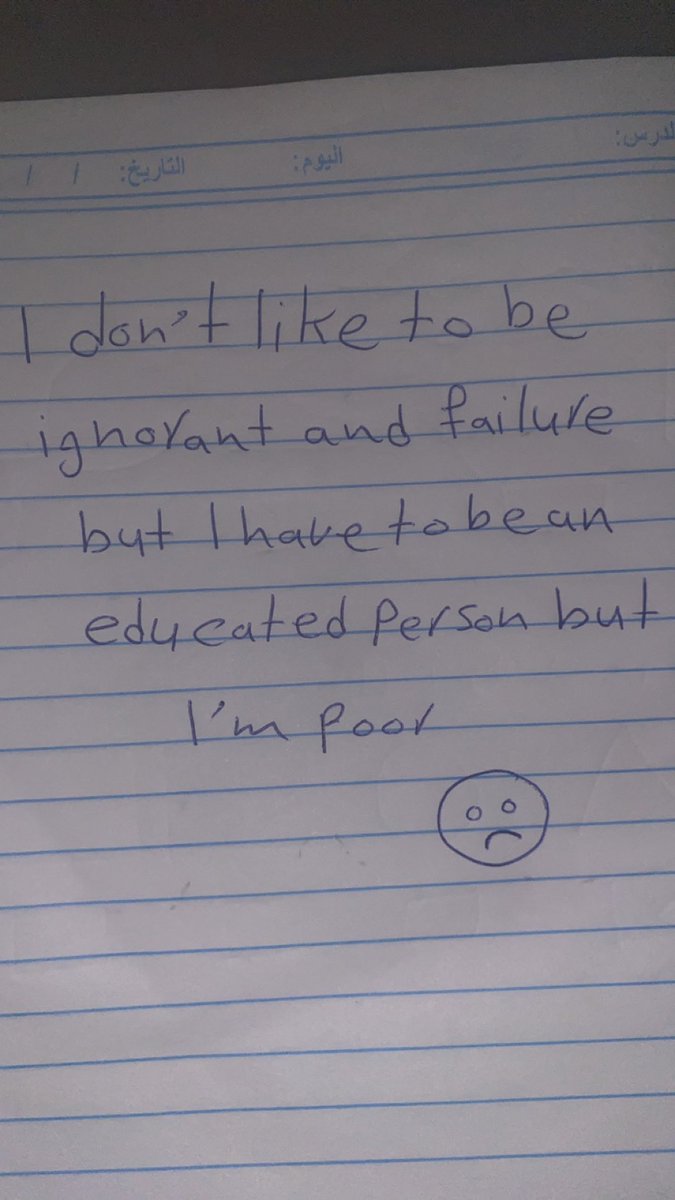 الدرس: اليوم: التاريخ: / /
I don't like to be
ignorant and failure
but I have to be an
educated person but
I'm poor